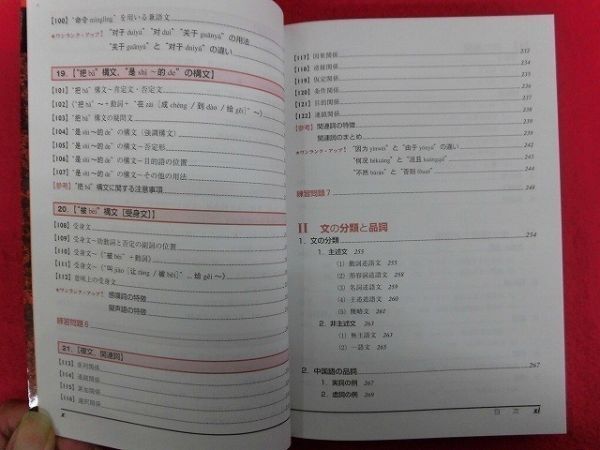 【100】“命令 mìnglìng”を用いる兼語文
★ワンランク・アップ！ “对于 duìyú”“对 duì”“关于 guānyú”の用法
“关于 guānyú”と“对于 duìyú”の違い
19.【“把 bǎ”構文、“是 shì ～的 de”の構文】
【101】“把 bǎ”構文－肯定文・否定文
【102】（“把 bǎ”～＋動詞＋“在 zài［成 chéng／到 dào／给 gěi］”～）
【103】“把 bǎ”構文の疑問文
【104】“是 shì～的 de”の構文（強調構文）
【105】“是 shì～的 de”の構文－否定形
【106】“是 shì～的 de”の構文－目的語の位置
【107】“是 shì～的 de”の構文－その他の用法
【参考】“把 bǎ”構文に関する注意事項
20.【“被 bèi”構文［受身文］】
【108】受身文
【109】受身文－助動詞と否定の副詞の位置
【110】受身文－（“被 bèi”＋動詞）
【111】受身文－（“叫 jiào［让 ràng／被 bèi］”… 给 gěi～）
【112】意味上の受身文
★ワンランク・アップ！ 感嘆詞の特徴
擬声語の特徴
練習問題 6
21.【複文、関連詞】
【113】並列関係
【114】連続関係
【115】累加関係
【116】選択関係
x
232
【117】因果関係
【118】逆接関係
【119】仮定関係
【120】条件関係
【121】目的関係
【122】連鎖関係
【参考】 関連詞の特徴 238
関連詞のまとめ 239
★ワンランク・アップ！ “因为 yīnwèi”と“由于 yóuyú”の違い 240
“何况 hékuàng”と“况且 kuàngqiě”
“不然 bùrán”と“否则 fǒuzé”
練習問題 7 248
II 文の分類と品詞
1. 文の分類 254
1. 主述文 255
（1）動詞述語文 255
（2）形容詞述語文 258
（3）名詞述語文 259
（4）主述述語文 260
（5）簡略文 262
2. 非主述文 263
（1）無主語文 263
（2）一語文 265
2. 中国語の品詞 267
1. 実詞の例 267
2. 虚詞の例 269
目 次 xi